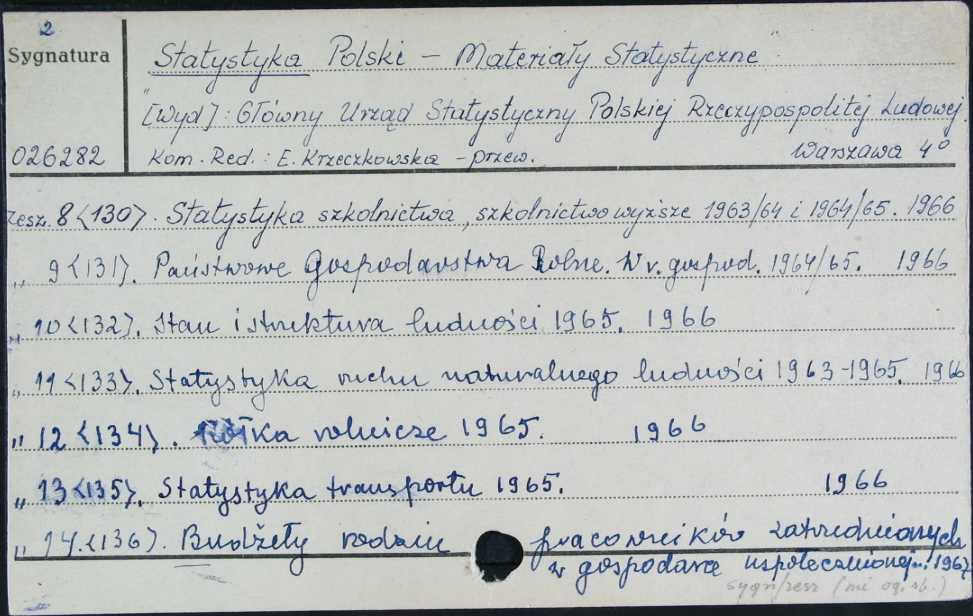 2
Sygnatura
Statystyka Polski – Materiały Statystyczne
[Wyd]: Główny Urząd Statystyczny Polskiej Rzeczypospolitej Ludowej.
026282
Kom. Red.: E. Krzeczkowska – przew. Warszawa 4°
Zesz. 8 <130>. Statystyka szkolnictwa, szkolnictwo wyższe 1963/64 i 1964/65. 1966
„ 9 <131>. Państwowe Gospodarstwa Rolne. W r. gospod. 1964/65. 1966
„ 10 <132>. Stan i struktura ludności 1965. 1966
„ 11 <133>. Statystyka ruchu naturalnego ludności 1963-1965. 1966
„ 12 <134>. Kółka rolnicze 1965. 1966
„ 13 <135>. Statystyka transportu 1965. 1966
„ 14. <136>. Budżety rodzin pracowników zatrudnionych
w gospodarce uspołecznionej... 1967
sygn/zesz